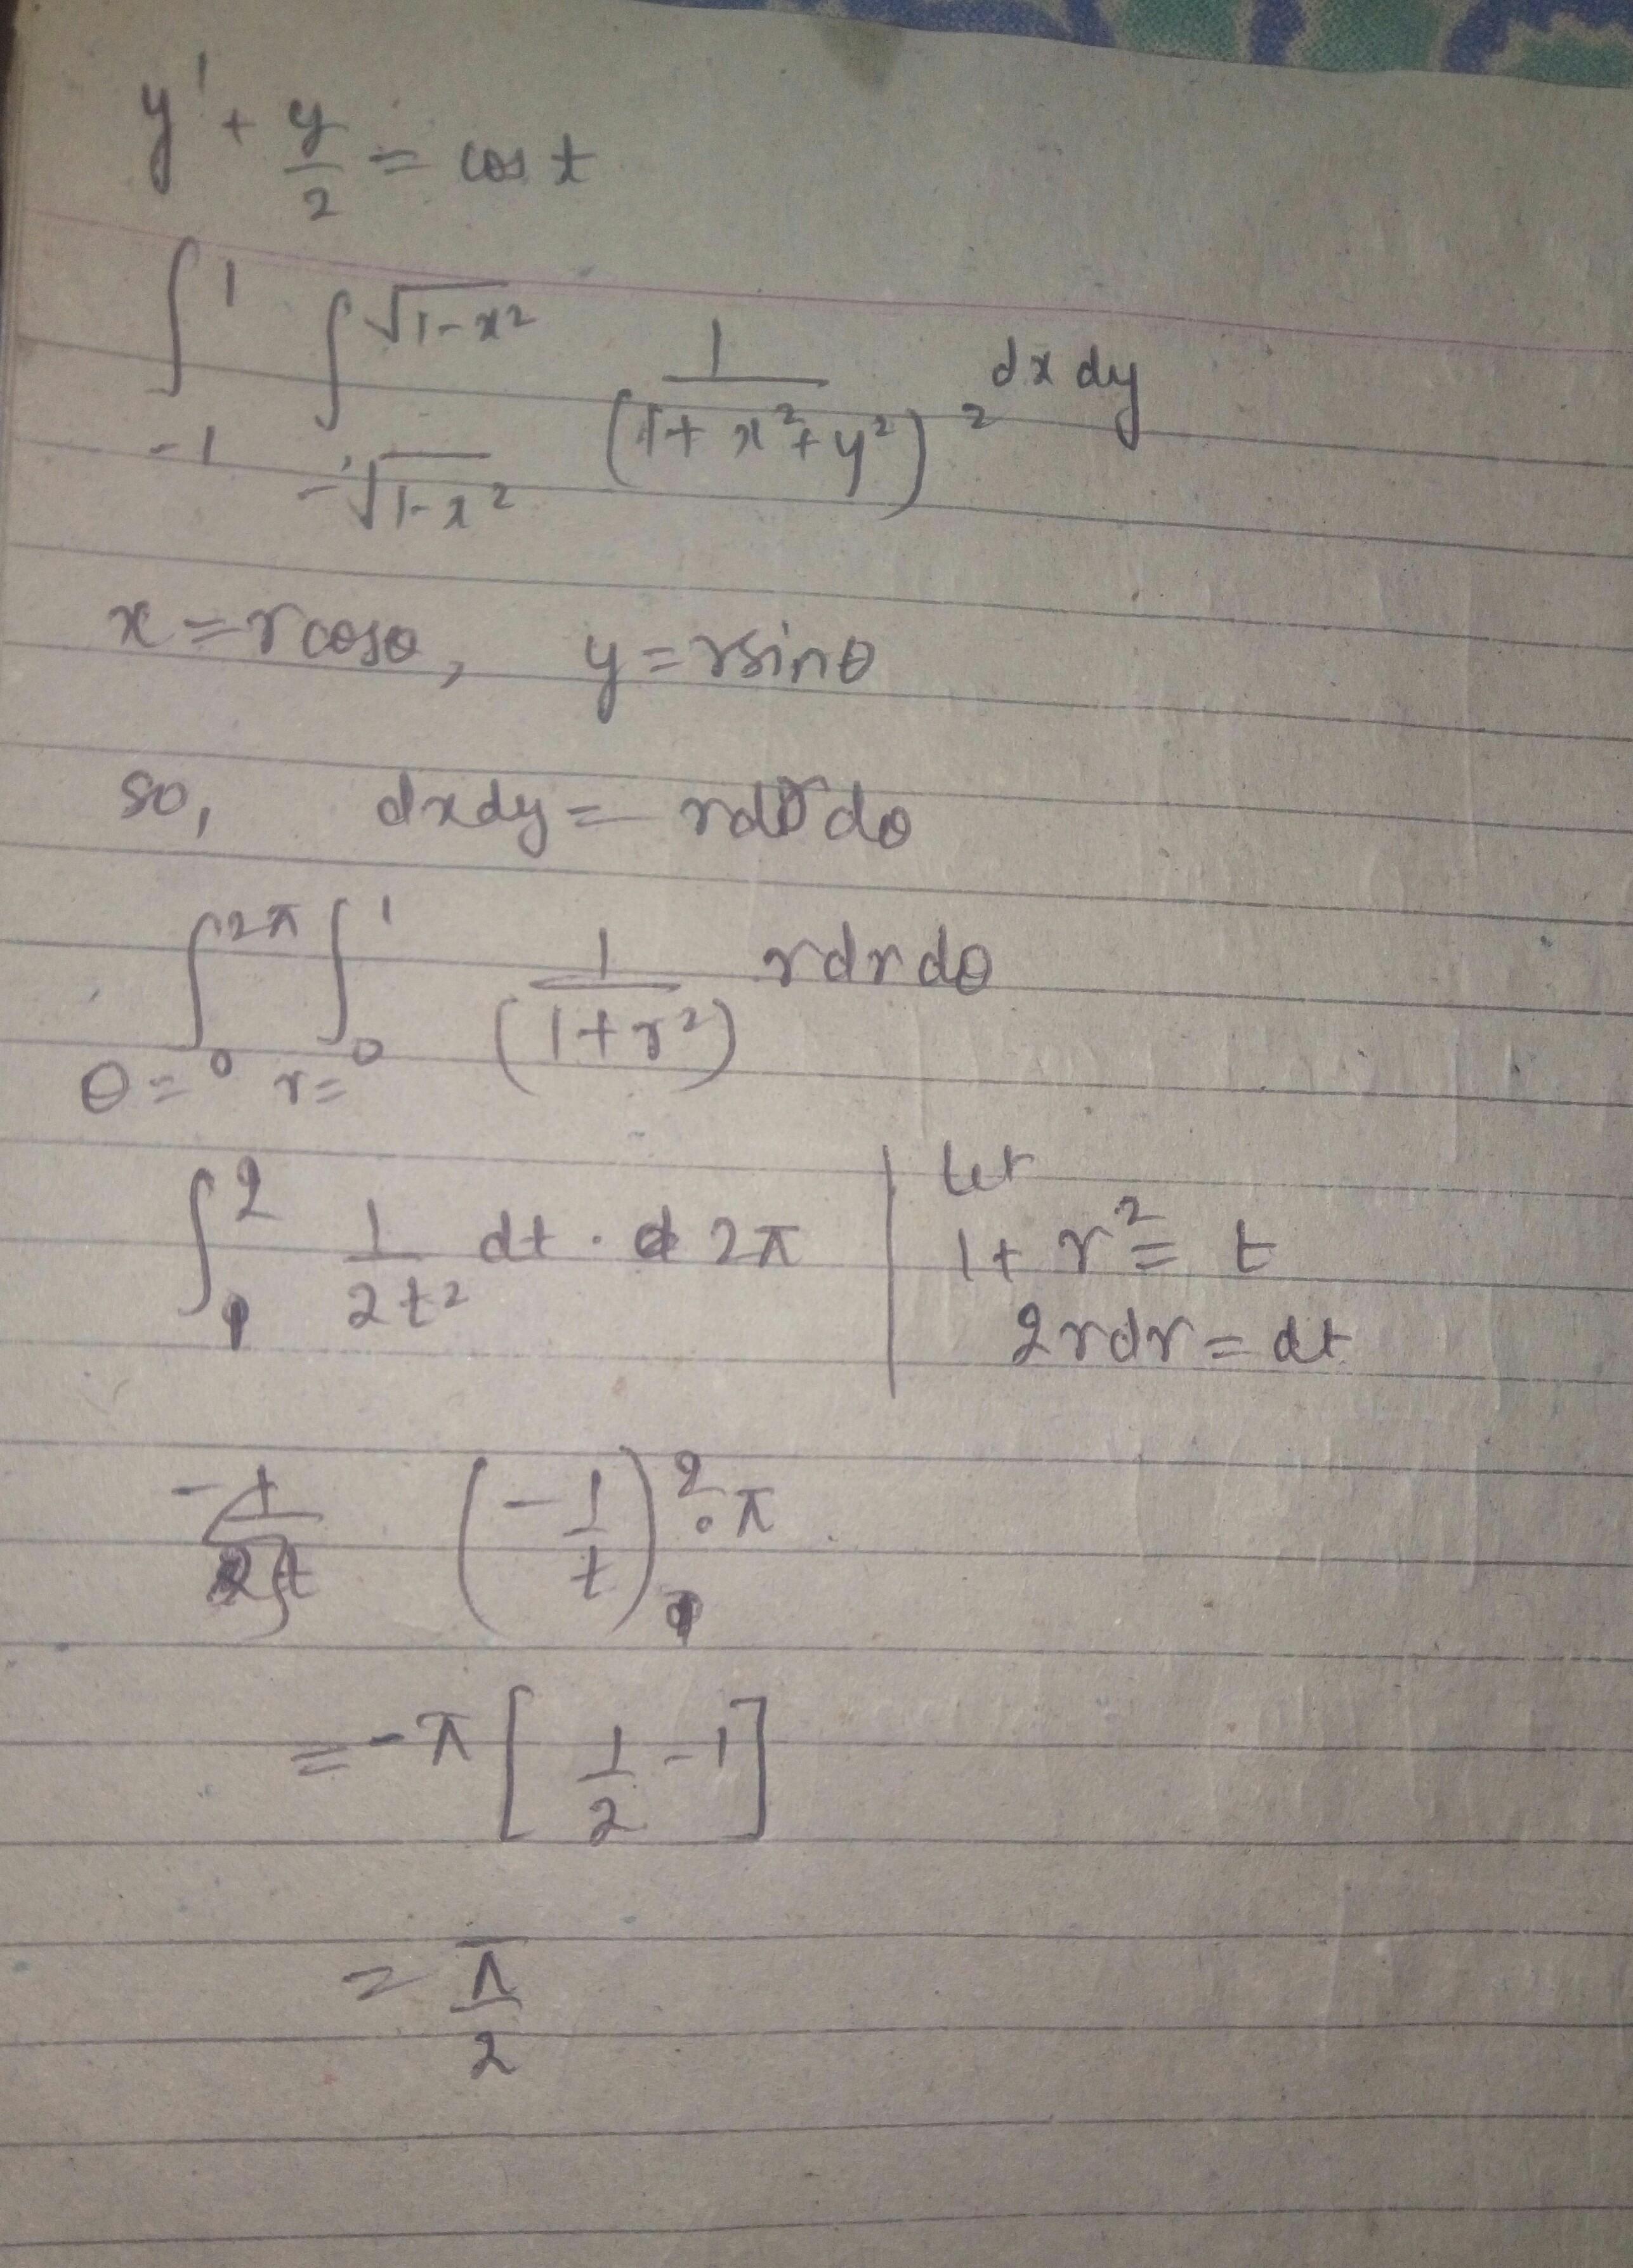 y' + y/2 = cos t
∫_{-1}^{1} ∫_{-√(1-x²)}^{√(1-x²)} 1/(1+x²+y²)² dx dy
x = r cosθ, y = r sinθ
so, dxdy = r dr dθ
∫_{θ=0}^{2π} ∫_{r=0}^{1} 1/(1+r²) r dr dθ
∫_{1}^{2} 1/(2t²) dt · 2π | Let
1 + r² = t
2rdr = dt
(-1/t)_{1}^{2} · π
= -π [1/2 - 1]
= π/2